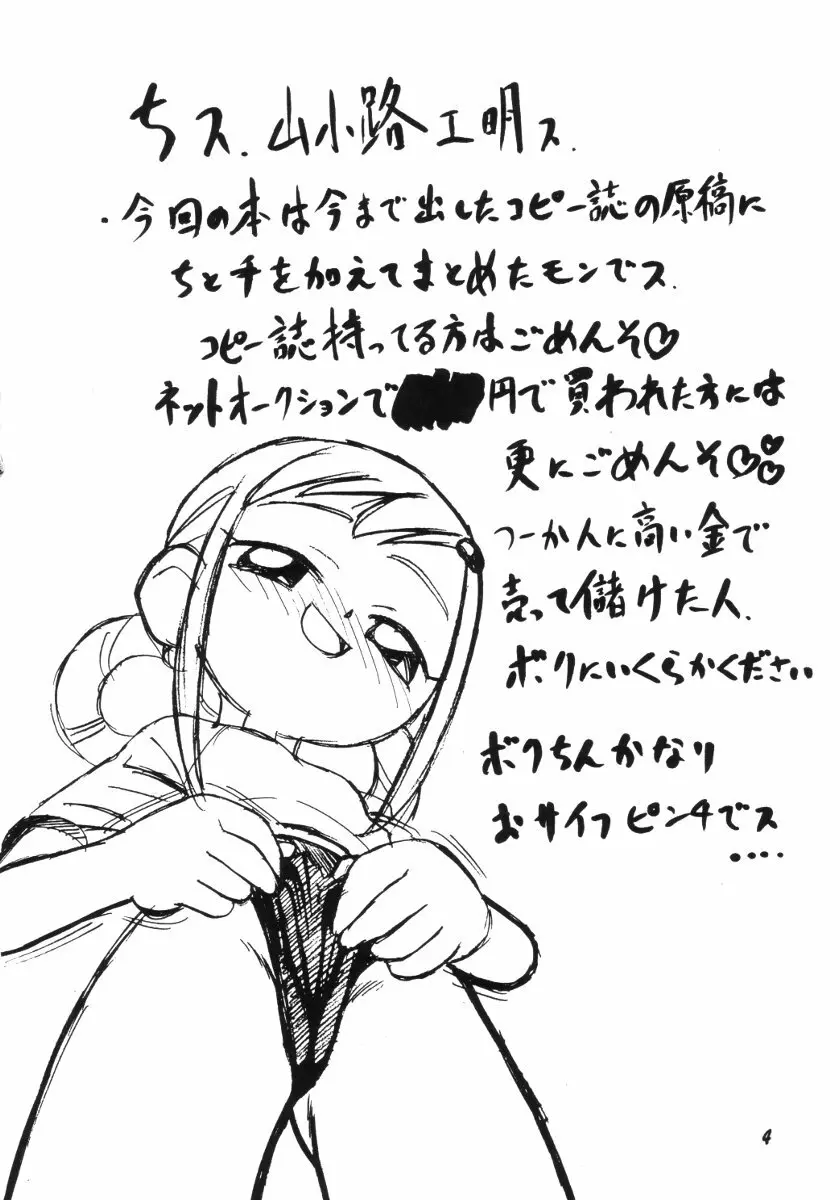 ちス.山小路工明ス.
・今回の本は今まで出したコピー誌の原稿に
ちと手を加えてまとめたモンでス.
コピー誌持ってる方はごめんそ♡
ネットオークションで 円で買われた方には
更にごめんそ♡♡♡
つーかんに高い金で
売って儲けた人.
ボクにいくらかください
ボクちんかなり
おサイフピンチでス
‥‥
4